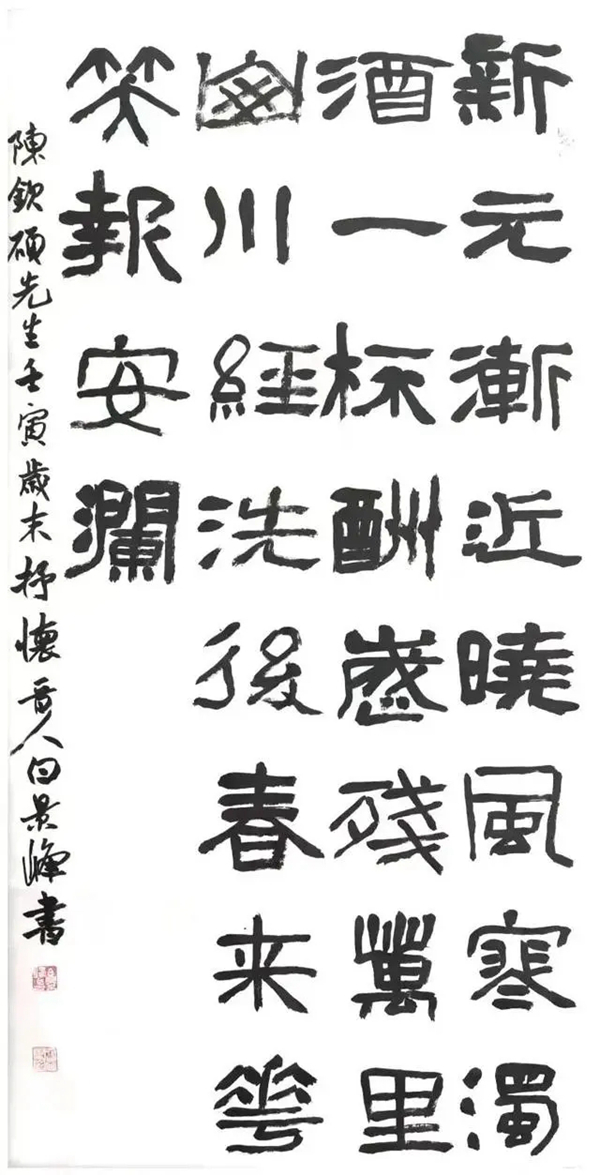 新元漸近曉風寒濁
酒一杯酬歲殘萬里
川經洗後春来華
笑報安瀾
陳欽碩先生壬寅歲末抒懷晉人白景峰書